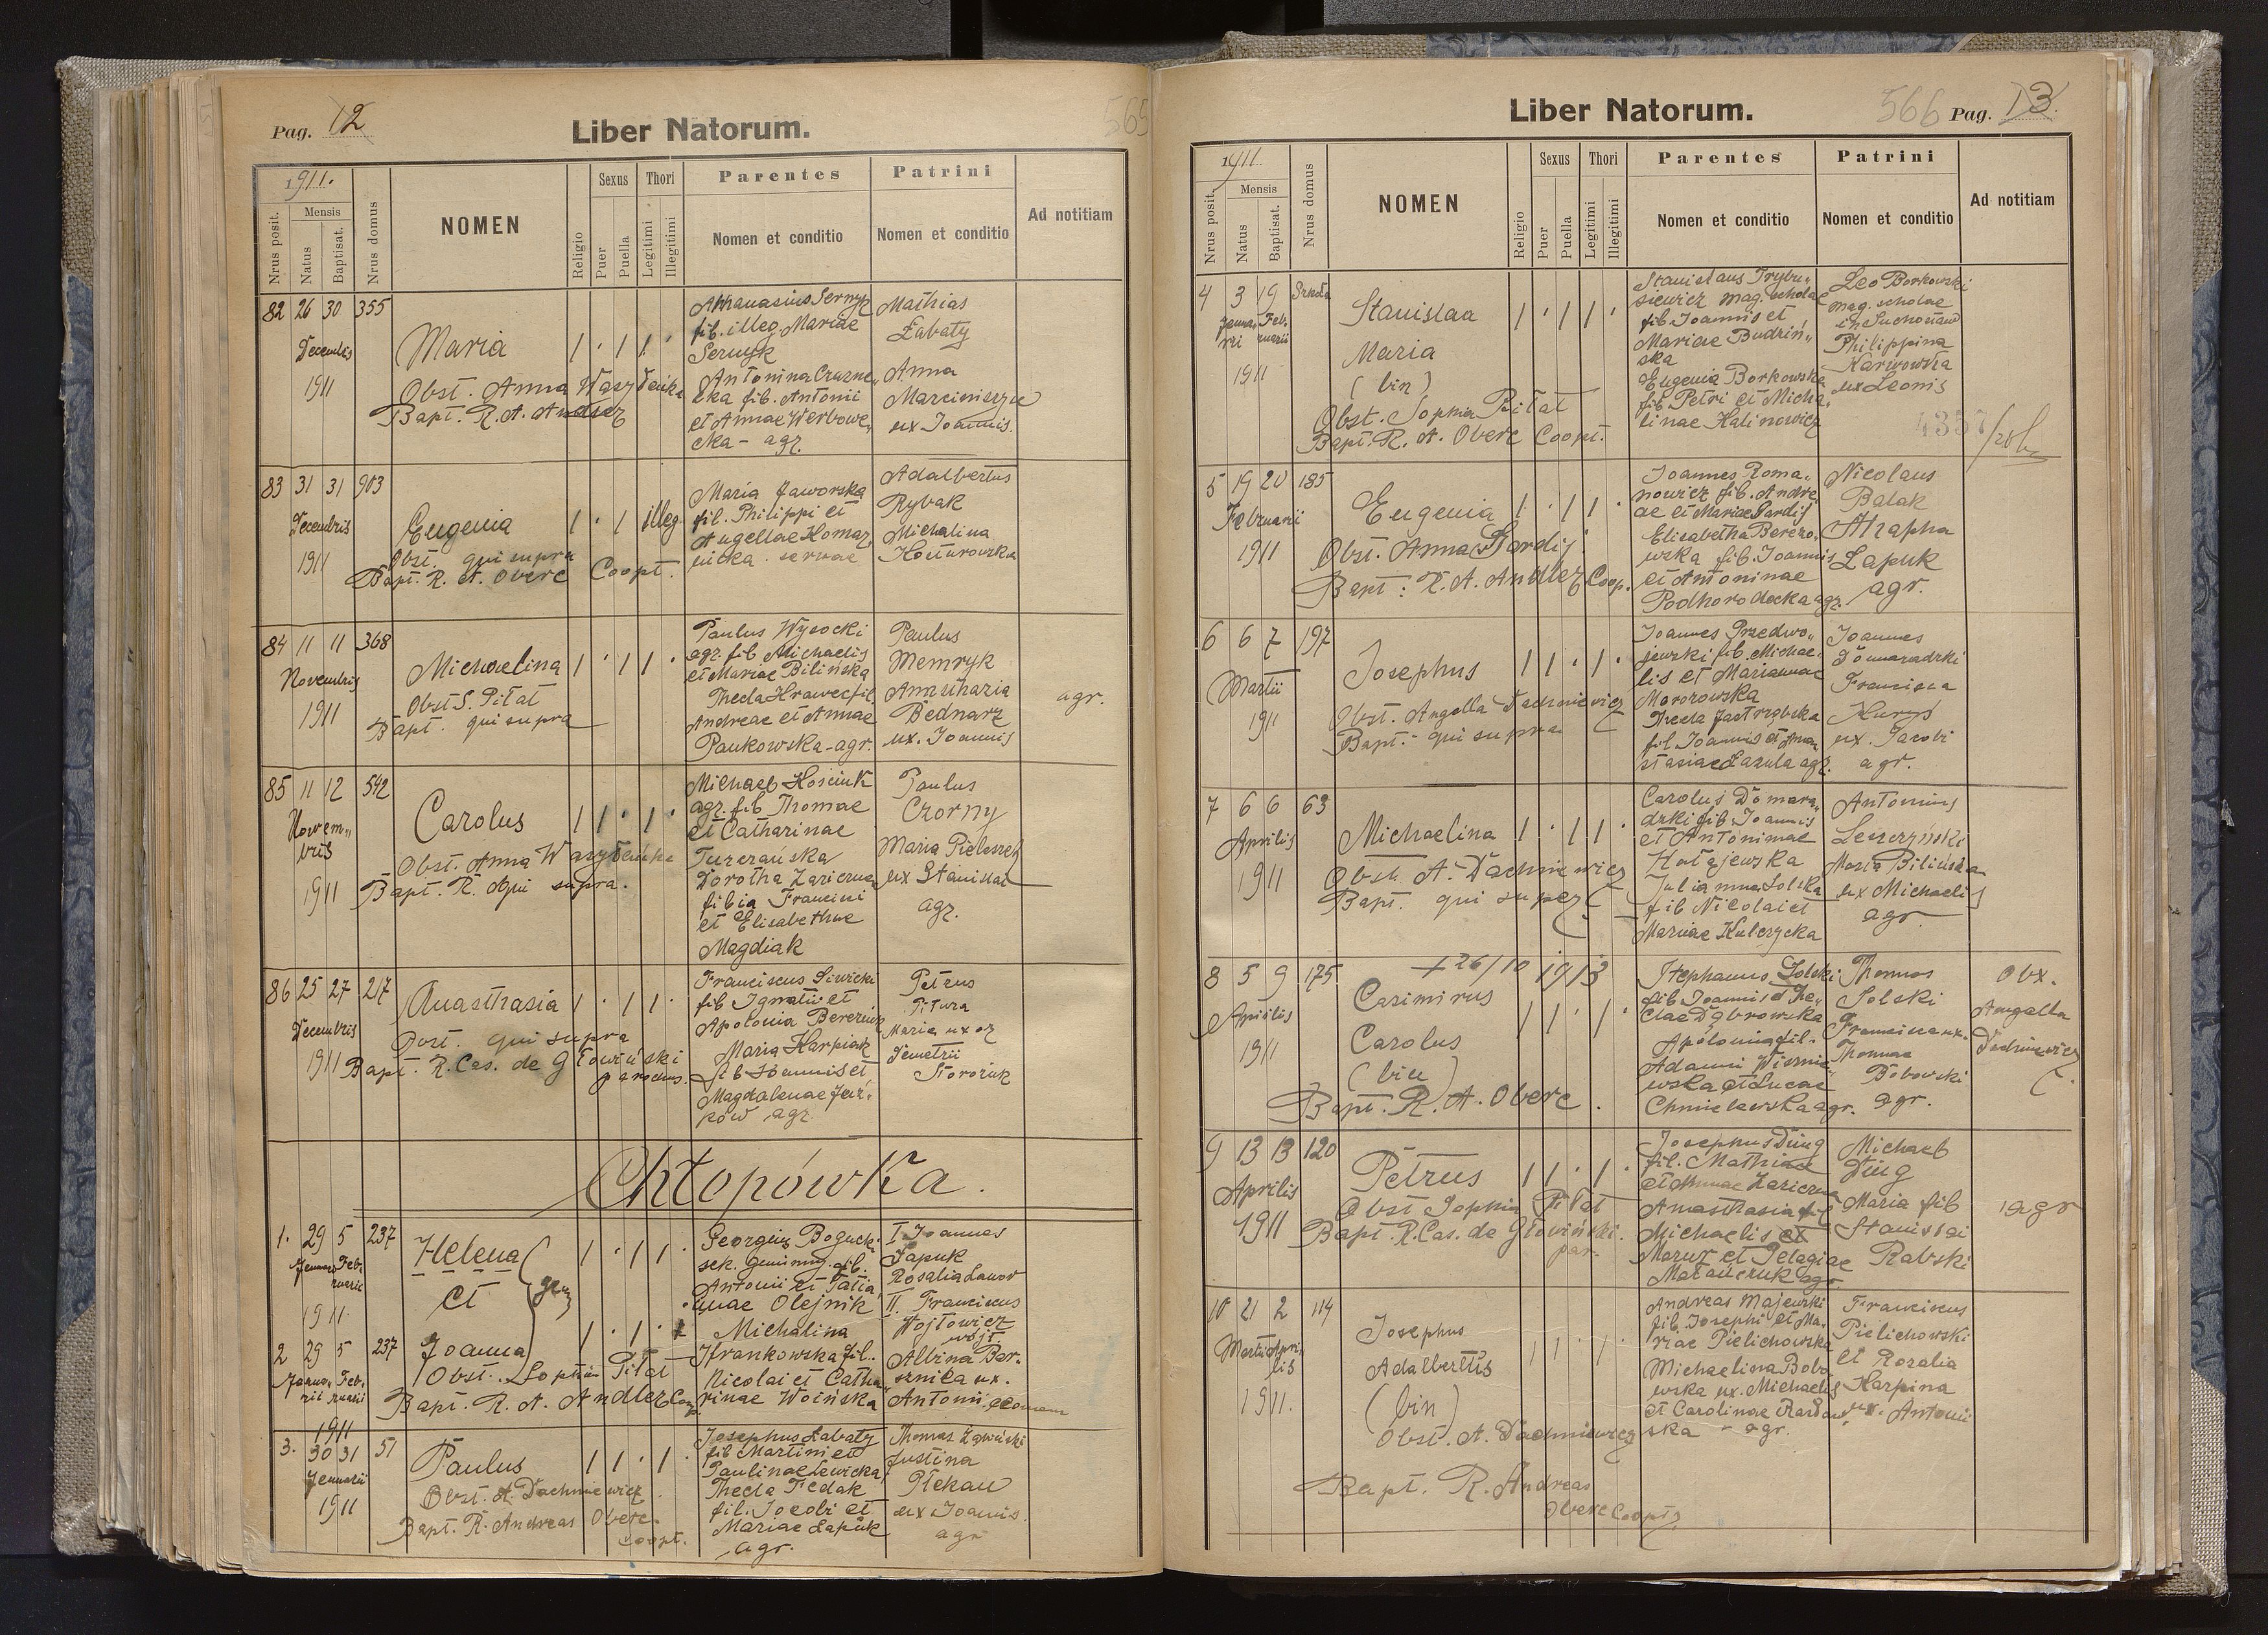 Pag. 12
Liber Natorum.
565
1911.
Nrus posit.
Mensis
Natus
Baptisat.
Nrus domus
NOMEN
Religio
Sexus
Puer
Puella
Thori
Legitimi
Illegitimi
Parentes
Nomen et conditio
Patrini
Nomen et conditio
Ad notitiam
82 26 30 355
Decembris
1911
Maria
Obst. Anna Wasyłeńka
Bapt. R. A. Andlez
Athanasius Sernyk
fil. illeg. Mariae
Sernyk
Antonina Czarne„
cka fil. Antonii
et Annae Werbowe„
cka - agr.
Mathias
Łabaty
Anna
Marciniszyn
ux Joannis.
83 31 31 903
Decembris
1911
Eugenia
illeg.
Obst. qui supra
Bapt. R. A. Oberc Coopt.
Maria Jaworska
fil. Philippi et
Angellae Komar„
nicka. servae
Adalbertus
Rybak
Michalina
Kosturowska
84 11 11 368
Novembris
1911
Michaelina
Obst S. Piłat
Bapt. qui supra
Paulus Wysocki
agr. fil Michaelis
et Mariae Bilińska
Thecla Krawec fil.
Andreae et Annae
Pankowska - agr.
Paulus
Memryk
Anasthazia
Bednarz
ux. Joannis
agr.
85 11 12 542
Novem„
bris
1911
Carolus
Obst. Anna Wasyłeńka
Bapt. R. A qui supra.
Michael Kościuk
agr. fil Thomae
et Catharinae
Turzańska
Dorotha Zariczna
filia Francisci
et Elisabethae
Magdiak
Paulus
Czorny
Maria Pieloszek
ux Stanislai
agr.
86 25 27 217
Decembris
1911
Anasthasia
Post. qui supra
Bapt. R. Cas. de Głowiński
parochus.
Franciscus Siwicki
fil Ignatii et
Apolonia Bereziuk
Maria Karpiak
fil Joannis et
Magdalenae Jaś„
ków agr.
Petrus
Pitura
Maria uxor
Demetrii
Storożuk
Chłopówka.
1. 29 5 237
Januarii Feb„
ruarii
1911
Helena
et
gem
2 29 5 237
Janua„ Feb„
rii ruarii
1911
Joanna
Obst. Sophia Piłat
Bapt. R. A. Andlez Coop.
Georgius Bogucki
sek. gminny. fil.
Antonii et Tatia„
nae Olejnik
Michalina
Hrankowska fil.
Nicolai et Catha„
rinae Woińska
I Joannes
Łapuk
Rosalia Lawor
II. Franciscus
Wojtowicz
wójt
Albina Bar„
sznica ux.
Antonii
3. 30 31 51
Januarii
1911
Paulus
Obst. A. Dachniewicz
Bapt. R. Andreas Oberc
Coopt.
Josephus Łabaty
fil Martini et
Paulinae Lewicka
Thecla Fedak
fil. Jacobi et
Mariae Łapuk
agr.
Thomas Zgwiński
Justina
Plekan
ux Joannis.
agr
Liber Natorum.
566 Pag. 13.
1911.
Nrus posit.
Mensis
Natus
Baptisat.
Nrus domus
NOMEN
Religio
Sexus
Puer
Puella
Thori
Legitimi
Illegitimi
Parentes
Nomen et conditio
Patrini
Nomen et conditio
Ad notitiam
4 3 19 Szkoła
Janua„ Feb„
rii ruarii
1911
Stanislaa
Maria
(bin)
Obst. Sophia Piłat
Bapt. R. A. Oberc Coopt.
Stanislaus Trybu„
siewicz mag. scholae
fil. Joannis et
Mariae Budziń„
ska
Eugenia Borkowska
fil. Petri et Micha„
linae Kalinowicz
Leo Borkowski
mag. scholae
in Suchostaw
Philippina
Karwowska
ux Leonis
4357
5 19 20 185
Februarii
1911
Eugenia
Obst. Anna Gardij
Bapt: R. A. Andlez Coop.
Joannes Roma„
nowicz fil. Andre„
ae et Mariae Gardij
Elisabetha Berezo„
wska fil. Joannis
et Antoninae
Podhorodecka agr.
Nicolaus
Balak
Agapha
Łapuk
agr.
6 6 7 197
Martii
1911
Josephus
Obst. Angella Dachniewicz
Bapt. qui supra
Joannes Przedwo„
jewski fil. Michae„
lis et Mariannae
Morozowska
Thecla Jastrzębska
fil Joannis et Ana„
stasiae Łazula agr.
Joannes
Domaradzki
Francisca
Kuryś
ux. Jacobi
agr.
7 6 6 63
Aprilis
1911
Michaelina
Obst. A. Dachniewicz
Bapt. qui super
Carolus Domara„
dzki fil. Joannis
et Antoninae
Hołajewska
Julianna Solska
fil Nicolai et
Mariae Kulczycka
Antonius
Leszczyński
Maria Bilińska
ux Michaelis
agr
8 5 9 175
Aprilis
1911
+ 26/10 1913
Casimirus
Carolus
(bin)
Bapt. R. A. Oberc.
Stephanus Solski
fil Joannis et The„
clae Dąbrowska
Apolonia fil.
Adami Wiśnie„
wska et Lucae
Chmielewska agr.
Thomas
Solski
Francisca ux.
Thomae
Bobowski
agr.
Obx.
Angella
Dachniewicz
9 13 13 120
Aprilis
1911
Petrus
Obst Sophia Piłat
Bapt. R. Cas. de Głowiński.
par.
Josephus Dług
fil. Mathiae
et Annae Zariczna
Anasthasia fil
Michaelis et
Mazur et Pelagiae
Matańczuk agr
Michael
Dług
Maria fil
Stanislai
Rabski
agr
10 21 2 114
Martii Apri„
lis
1911.
Josephus
Adalbertus
(bin)
Obst. A. Dachniewicz
Bapt. R. Andreas
Oberc Coopt.
Andreas Majewski
fil. Josephi et Ma„
riae Pielichowska
Michaelina Bobo„
wska ux. Michaelis
et Carolinae Rardow„
ska - agr.
Franciscus
Pielichowski
et Rozalia
Karpina
ux. Antonii